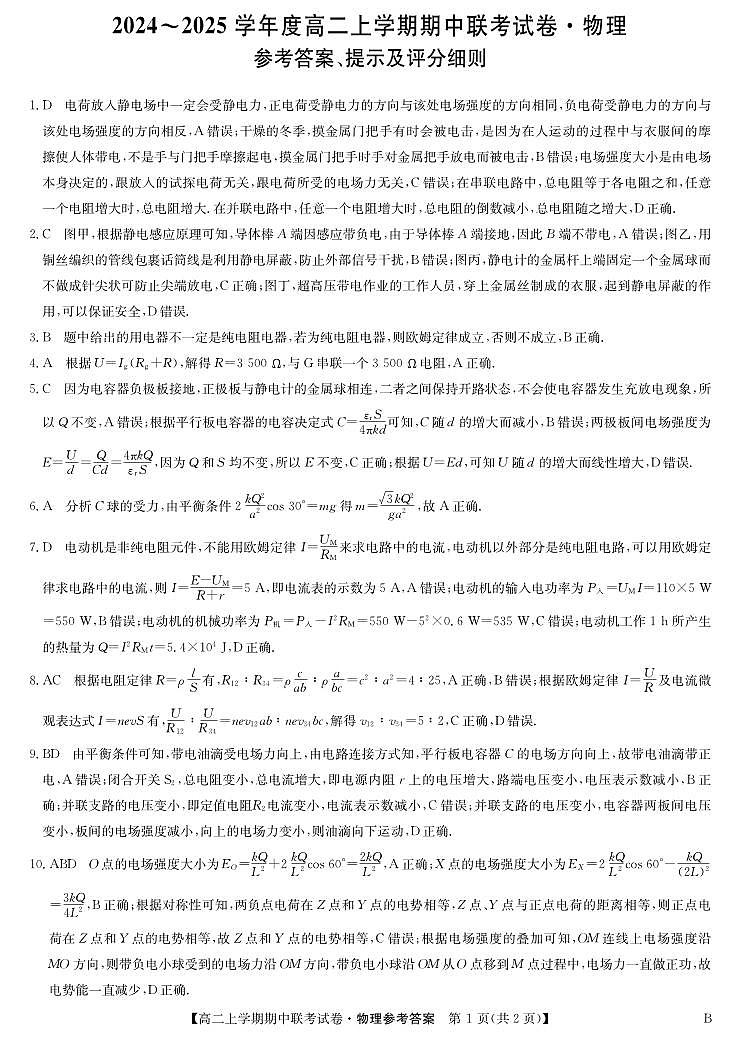 2024～2025 学年度高二上学期期中联考试卷·物理
参考答案、提示及评分细则
1. D　电荷放入静电场中一定会受静电力,正电荷受静电力的方向与该处电场强度的方向相同,负电荷受静电力的方向与
该处电场强度的方向相反,A 错误;干燥的冬季,摸金属门把手有时会被电击,是因为在人运动的过程中与衣服间的摩
擦使人体带电,不是手与门把手摩擦起电,摸金属门把手时手对金属把手放电而被电击,B 错误;电场强度大小是由电场
本身决定的,跟放入的试探电荷无关,跟电荷所受的电场力无关,C 错误;在串联电路中,总电阻等于各电阻之和,任意
一个电阻增大时,总电阻增大. 在并联电路中,任意一个电阻增大时,总电阻的倒数减小,总电阻随之增大,D 正确.
2. C　图甲,根据静电感应原理可知,导体棒 A 端因感应带负电,由于导体棒 A 端接地,因此 B 端不带电,A 错误;图乙,用
铜丝编织的管线包裹话筒线是利用静电屏蔽,防止外部信号干扰,B 错误;图丙,静电计的金属杆上端固定一个金属球而
不做成针尖状可防止尖端放电,C 正确;图丁,超高压带电作业的工作人员,穿上金属丝制成的衣服,起到静电屏蔽的作
用,可以保证安全,D 错误.
3. B　题中给出的用电器不一定是纯电阻电器,若为纯电阻电器,则欧姆定律成立,否则不成立,B 正确.
4. A　根据 U=I_g(R_g+R),解得 R=3 500 Ω,与 G 串联一个 3 500 Ω 电阻,A 正确.
5. C　因为电容器负极板接地,正极板与静电计的金属球相连,二者之间保持开路状态,不会使电容器发生充放电现象,所
以 Q 不变,A 错误;根据平行板电容器的电容决定式 C=ε_rS/4πkd 可知,C 随 d 的增大而减小,B 错误;两极板间电场强度为
E=U/d=Q/Cd=4πkQ/ε_rS,因为 Q 和 S 均不变,所以 E 不变,C 正确;根据 U=Ed,可知 U 随 d 的增大而线性增大,D 错误.
6. A　分析 C 球的受力,由平衡条件 2 kQ²/a² cos 30°=mg 得 m=√3kQ²/ga²,故 A 正确.
7. D　电动机是非纯电阻元件,不能用欧姆定律 I=U_M/R_M 来求电路中的电流,电动机以外部分是纯电阻电路,可以用欧姆定
律求电路中的电流,则 I=(E−U_M)/(R+r)=5 A,即电流表的示数为 5 A,A 错误;电动机的输入电功率为 P入=U_MI=110×5 W
=550 W,B 错误;电动机的机械功率为 P机=P入−I²R_M=550 W−5²×0.6 W=535 W,C 错误;电动机工作 1 h 所产生
的热量为 Q=I²R_Mt=5.4×10⁴ J,D 正确.
8. AC　根据电阻定律 R=ρ l/S 有,R₁₂∶R₃₄=ρ c/ab∶ρ a/bc=c²∶a²=4∶25,A 正确,B 错误;根据欧姆定律 I=U/R 及电流微
观表达式 I=nevS 有,U/R₁₂∶U/R₃₄=nev₁₂ab∶nev₃₄bc,解得 v₁₂∶v₃₄=5∶2,C 正确,D 错误.
9. BD　由平衡条件可知,带电油滴受电场力向上,由电路连接方式知,平行板电容器 C 的电场方向向上,故带电油滴带正
电,A 错误;闭合开关 S₂,总电阻变小,总电流增大,即电源内阻 r 上的电压增大,路端电压变小,电压表示数减小,B 正
确;并联支路的电压变小,即定值电阻R₂电流变小,电流表示数减小,C 错误;并联支路的电压变小,电容器两板间电压
变小,板间的电场强度减小,向上的电场力变小,则油滴向下运动,D 正确.
10. ABD　O 点的电场强度大小为 E_O=kQ/L²+2 kQ/L² cos 60°=2kQ/L²,A 正确;X 点的电场强度大小为 E_X=2 kQ/L² cos 60°−kQ/(2L)²
=3kQ/4L²,B 正确;根据对称性可知,两负点电荷在 Z 点和 Y 点的电势相等,Z 点、Y 点与正点电荷的距离相等,则正点电
荷在 Z 点和 Y 点的电势相等,故 Z 点和 Y 点的电势相等,C 错误;根据电场强度的叠加可知,OM 连线上电场强度沿
MO 方向,则带负电小球受到的电场力沿 OM 方向,带负电小球沿 OM 从 O 点移到 M 点过程中,电场力一直做正功,故
电势能一直减少,D 正确.
【高二上学期期中联考试卷·物理参考答案　第 1 页(共 2 页)】　B